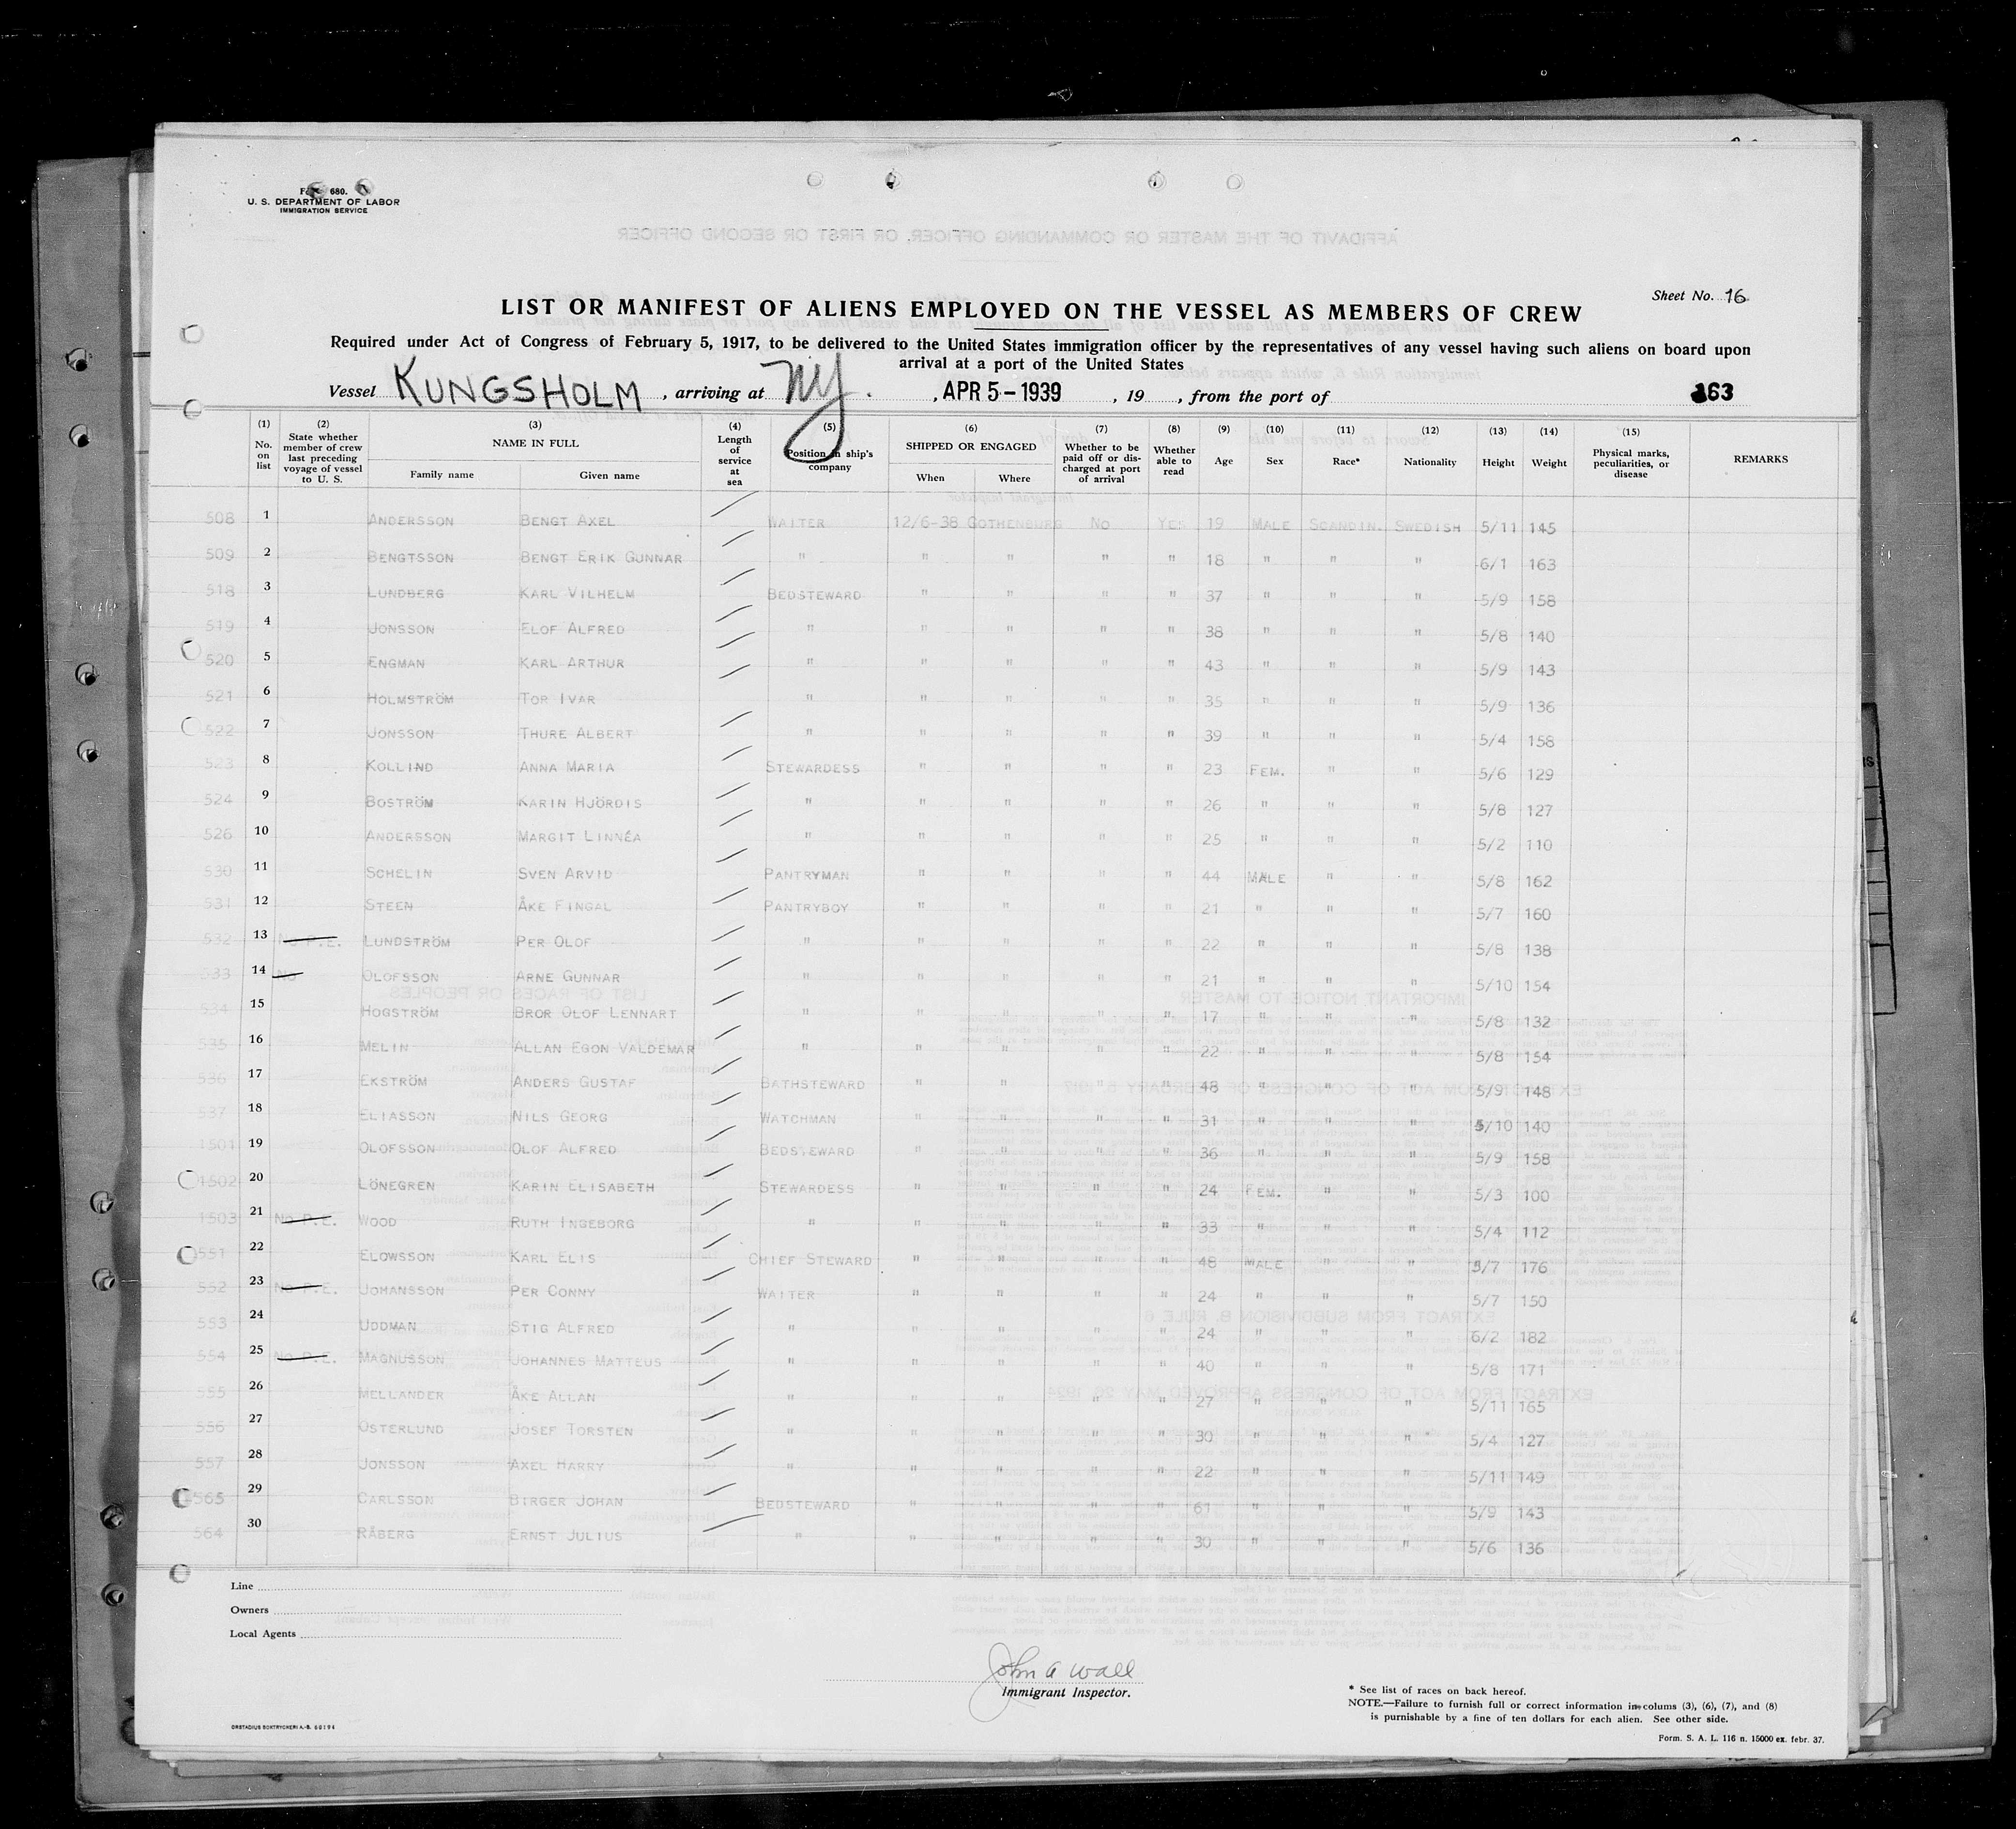 Form 680.
U. S. DEPARTMENT OF LABOR
IMMIGRATION SERVICE
Sheet No. 16
LIST OR MANIFEST OF ALIENS EMPLOYED ON THE VESSEL AS MEMBERS OF CREW
Required under Act of Congress of February 5, 1917, to be delivered to the United States immigration officer by the representatives of any vessel having such aliens on board upon
arrival at a port of the United States
Vessel KUNGSHOLM, arriving at NY., APR 5-1939, 19, from the port of 163
(1) No. on list (2) State whether member of crew last preceding voyage of vessel to U. S. (3) NAME IN FULL Family name Given name (4) Length of service at sea (5) Position in ship's company (6) SHIPPED OR ENGAGED When Where (7) Whether to be paid off or discharged at port of arrival (8) Whether able to read (9) Age (10) Sex (11) Race* (12) Nationality (13) Height (14) Weight (15) Physical marks, peculiarities, or disease REMARKS
508 1 ANDERSSON BENGT AXEL WAITER 12/6-38 GOTHENBURG NO YES 19 MALE SCANDIN. SWEDISH 5/11 145
509 2 BENGTSSON BENGT ERIK GUNNAR " " " " " 18 " " " 6/1 163
518 3 LUNDBERG KARL VILHELM BEDSTEWARD " " " " 37 " " " 5/9 158
519 4 JONSSON ELOF ALFRED " " " " " 38 " " " 5/8 140
520 5 ENGMAN KARL ARTHUR " " " " " 43 " " " 5/9 143
521 6 HOLMSTRÖM TOR IVAR " " " " " 35 " " " 5/9 136
522 7 JONSSON THURE ALBERT " " " " " 39 " " " 5/4 158
523 8 KOLLIND ANNA MARIA STEWARDESS " " " " 23 FEM. " " 5/6 129
524 9 BOSTRÖM KARIN HJÖRDIS " " " " " 26 " " " 5/8 127
526 10 ANDERSSON MARGIT LINNÉA " " " " " 25 " " " 5/2 110
530 11 SCHELIN SVEN ARVID PANTRYMAN " " " " 44 MALE " " 5/8 162
531 12 STEEN ÅKE FINGAL PANTRYBOY " " " " 21 " " " 5/7 160
532 13 NO P.E. LUNDSTRÖM PER OLOF " " " " " 22 " " " 5/8 138
533 14 NO OLOFSSON ARNE GUNNAR " " " " " 21 " " " 5/10 154
534 15 HÖGSTRÖM BROR OLOF LENNART " " " " " 17 " " " 5/8 132
535 16 MELIN ALLAN EGON VALDEMAR " " " " " 22 " " " 5/8 154
536 17 EKSTRÖM ANDERS GUSTAF BATHSTEWARD " " " " 48 " " " 5/9 148
537 18 ELIASSON NILS GEORG WATCHMAN " " " " 31 " " " 5/10 140
1501 19 OLOFSSON OLOF ALFRED BEDSTEWARD " " " " 36 " " " 5/9 158
1502 20 LÖNEGREN KARIN ELISABETH STEWARDESS " " " " 24 FEM. " " 5/3 100
1503 21 NO P.E. WOOD RUTH INGEBORG " " " " " 33 " " " 5/4 112
551 22 ELOWSSON KARL ELIS CHIEF STEWARD " " " " 48 MALE " " 5/7 176
552 23 NO P.E. JOHANSSON PER CONNY WAITER " " " " 24 " " " 5/7 150
553 24 UDDMAN STIG ALFRED " " " " " 24 " " " 6/2 182
554 25 NO P.E. MAGNUSSON JOHANNES MATTEUS " " " " " 40 " " " 5/8 171
555 26 MELLANDER ÅKE ALLAN " " " " " 27 " " " 5/11 165
556 27 ÖSTERLUND JOSEF TORSTEN " " " " " 30 " " " 5/4 127
557 28 JONSSON AXEL HARRY " " " " " 22 " " " 5/11 149
565 29 CARLSSON BIRGER JOHAN BEDSTEWARD " " " " 61 " " " 5/9 143
564 30 RÅBERG ERNST JULIUS " " " " " 30 " " " 5/6 136
Line
Owners
Local Agents
John A Wall
Immigrant Inspector.
* See list of races on back hereof.
NOTE.—Failure to furnish full or correct information in colums (3), (6), (7), and (8)
is punishable by a fine of ten dollars for each alien. See other side.
ORSTADIUS BOKTRYCKERI A.-B. 60194
Form. S. A. L. 116 n. 15000 ex. febr. 37.